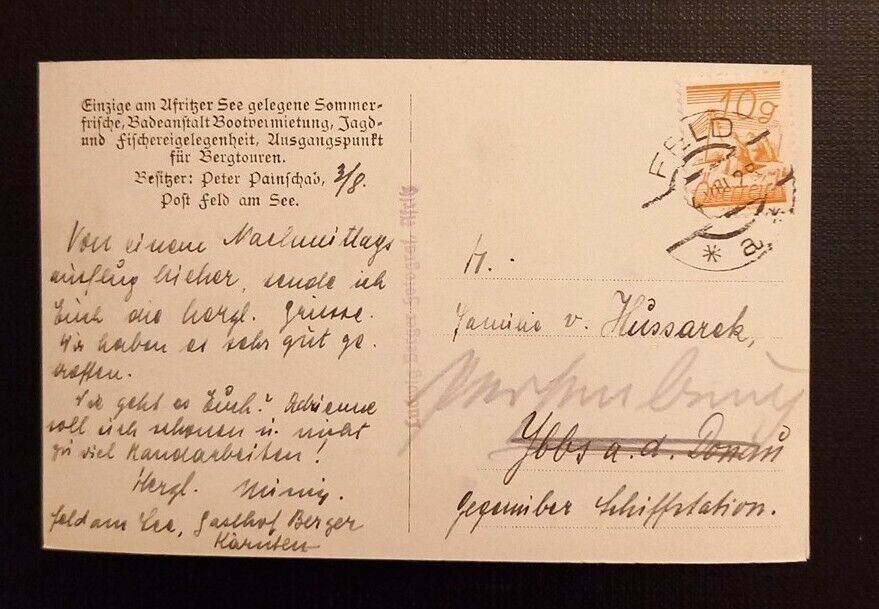 Einzige am Afritzer See gelegene Sommer-
frische, Badeanstalt Bootvermietung, Jagd-
und Fischereigelegenheit, Ausgangspunkt
für Bergtouren.
Besitzer: Peter Painschab,
Post Feld am See.
3/8.
Von einem Nachmittags
ausflug hieher, sende ich
Euch die herzl. Grüsse.
Wir haben es sehr gut ge.
troffen.
Wie geht es Euch? Adrienne
soll sich schonen u. nicht
zu viel Handarbeiten!
Herzl.
Feld am See, Gasthof Berger
Kärnten
Ludwig Berger, Fotograf, Afritz
10g
Österreich
FELD
* a *
H.
Familie v. Hussarek,
Persenbeug
Ybbs a. d. Donau
Gegenüber Schiffstation.